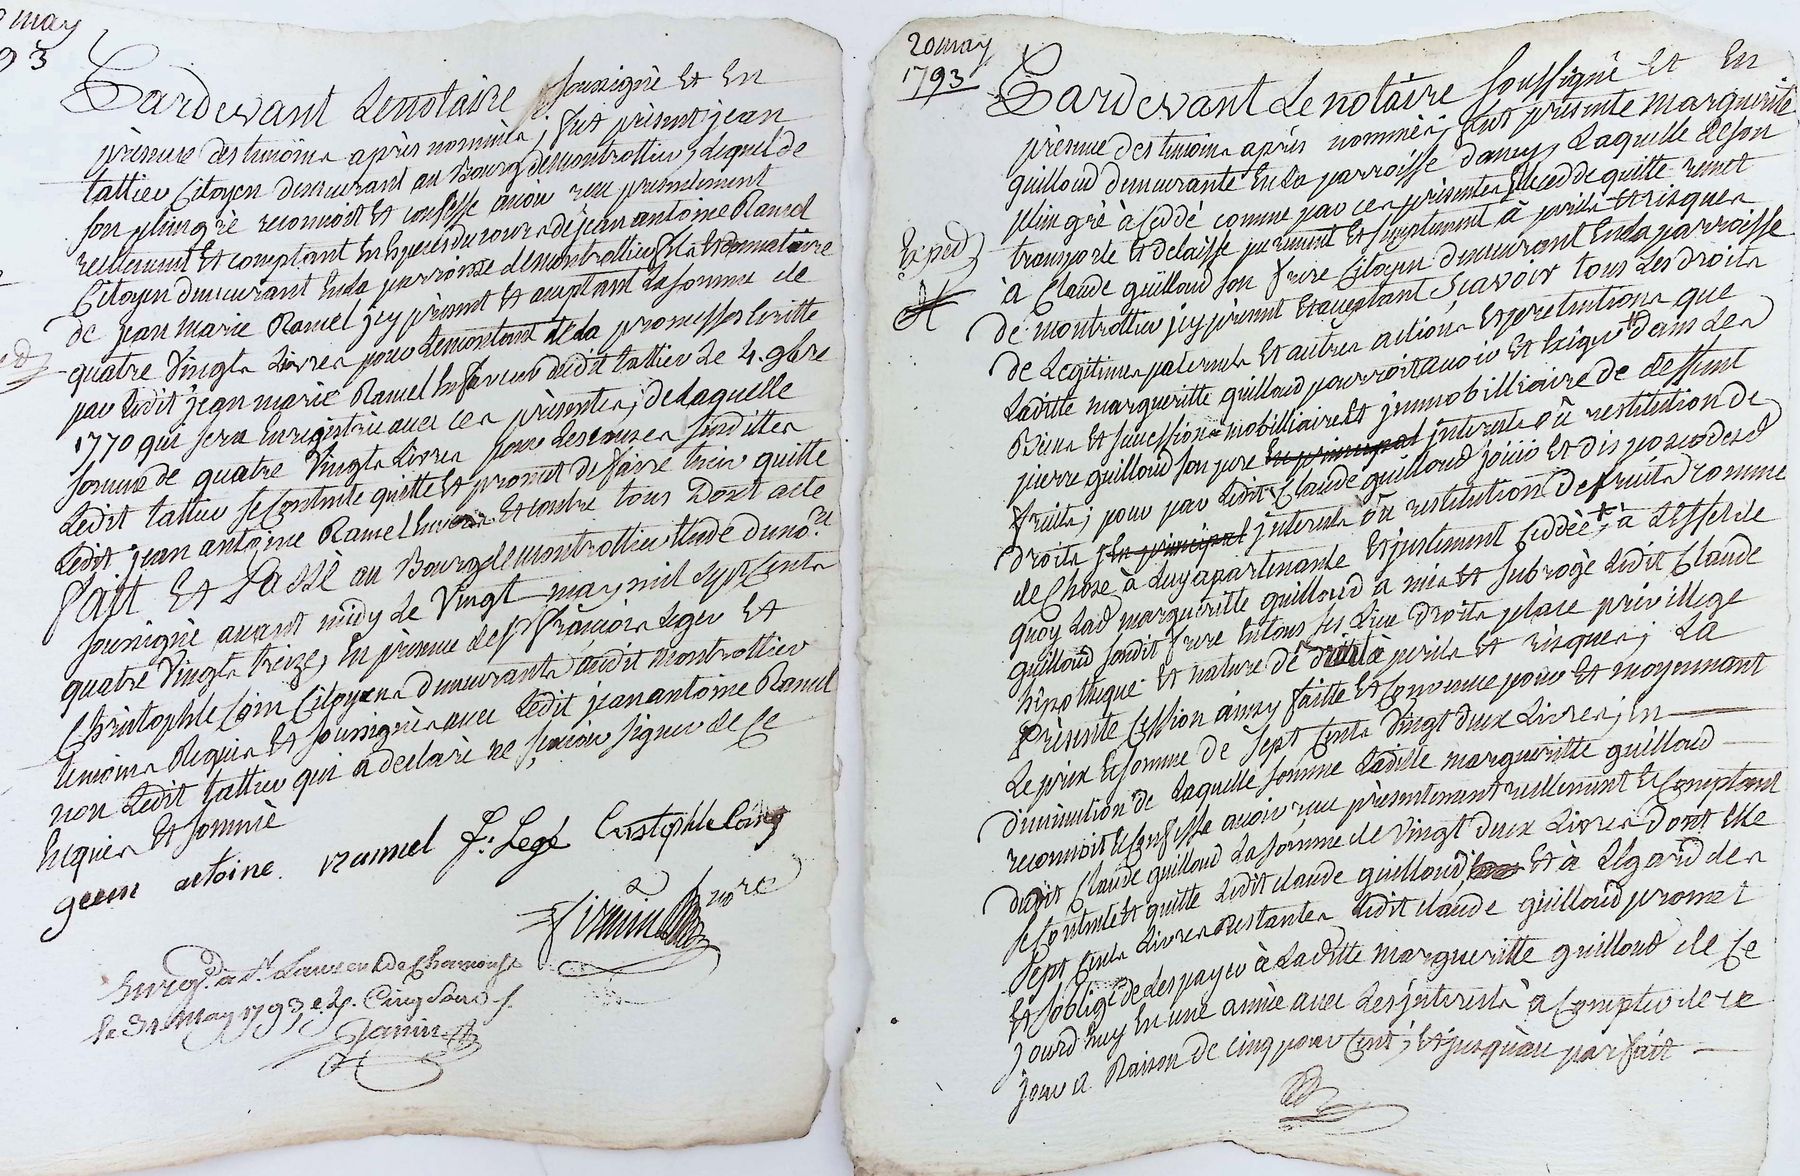 may
93
Pardevant Le notaire soussigné Et En
présence des témoins après nommés, fut présent jean
tattier Citoyen demeurant au Bourg de montrottier, Lequel de
son plein gré reconnoit Et confesse avoir reçu présentement
reellement Et comptant En Especes du cours de jean antoine Ramel
Citoyen demeurant En la parroisse de montrottier fils Et donnataire
de jean marie Ramel jcy présent Et acceptant La somme de
quatre Vingts Livres pour Le montant de la promesses Ecritte
par Ledit jean marie Ramel En faveur dudit tattier Le 4. 9bre
1770 qui sera Enregistrée avec ces présentes; de Laquelle
somme de quatre Vingts Livres pour Les causes susdittes
Ledit tattier se Contente quitte Et promet de faire tenir quitte
Ledit jean antoine Ramel Envers Et contre tous Dont acte
Fait Et Passé au Bourg de montrottier Etude du no.re
soussigné avant midy Le Vingt may mil sept Cents
quatre Vingts treize, En présence de Sr. François Leger Et
Christophle Coin Citoyens demeurants audit montrottier
témoins Requis Et soussignés avec Ledit jean antoine Ramel
non Ledit tattier qui a déclaré ne sçavoir signer de Ce
Enquis Et sommé
geen antoine ramel F. Legé Cristophle Coing
nore
Enreg. à St. Laurent de Chamousset
le 31 may 1793, Cinq Sous
Janin
20 may
1793
Exped
Pardevant Le notaire soussigné Et En
présence des témoins après nommés, fut présente marguerite
guilloud demeurante En la parroisse dancy, Laquelle de son
plein gré à Cédé comme par ces présentes Elle cedde quitte remet
transporte Et delaisse purement Et simplement à perils Et risques
à Claude guilloud son frere Citoyen demeurant En la parroisse
de montrottier jcy présent Et acceptant Sçavoir tous Les droits
de Legitimes paternels Et autres actions Et pretentions que
Laditte marguerite guilloud pourroit avoir Et Exiger dans Les
Biens Et succession mobilliaire Et jmmobilliaire de deffunt
pierre guilloud son pere En principal jnterets où restitution de
fruits; pour par Ledit Claude guilloud joüir Et disposer desd
droits En principal jnterets où restitution de fruits comme
de Chose à Luy apartenante Et justement Ceddée, à L'effet de
quoy Lad marguerite guilloud a mis Et subrogé Ledit Claude
guilloud sondit frere En tous ses Lieu Droits place privillege
hipotheque Et nature de droits à perils Et risques; La
Présente Cession ainsy faitte Et Convenue pour Et moyennant
Le prix Et somme de Sept Cents Vingt deux Livres; En
diminution de Laquelle somme Laditte marguerite guilloud
reconnoit Et Confesse avoir reçu présentement reellement Et Comptant
dudit Claude guilloud La somme de Vingt deux Livres Dont Elle
se Contente Et quitte Ledit claude guilloud, Et à L'Egard des
Sept Cents Livres Restantes Ledit claude guilloud promet
Et s'oblige de Les payer à Laditte marguerite guilloud de Ce
jourd'huy En une année avec Les jnterets à Compter de ce
jour à Raison de Cinq pour Cent; Et jusqu'au parfait